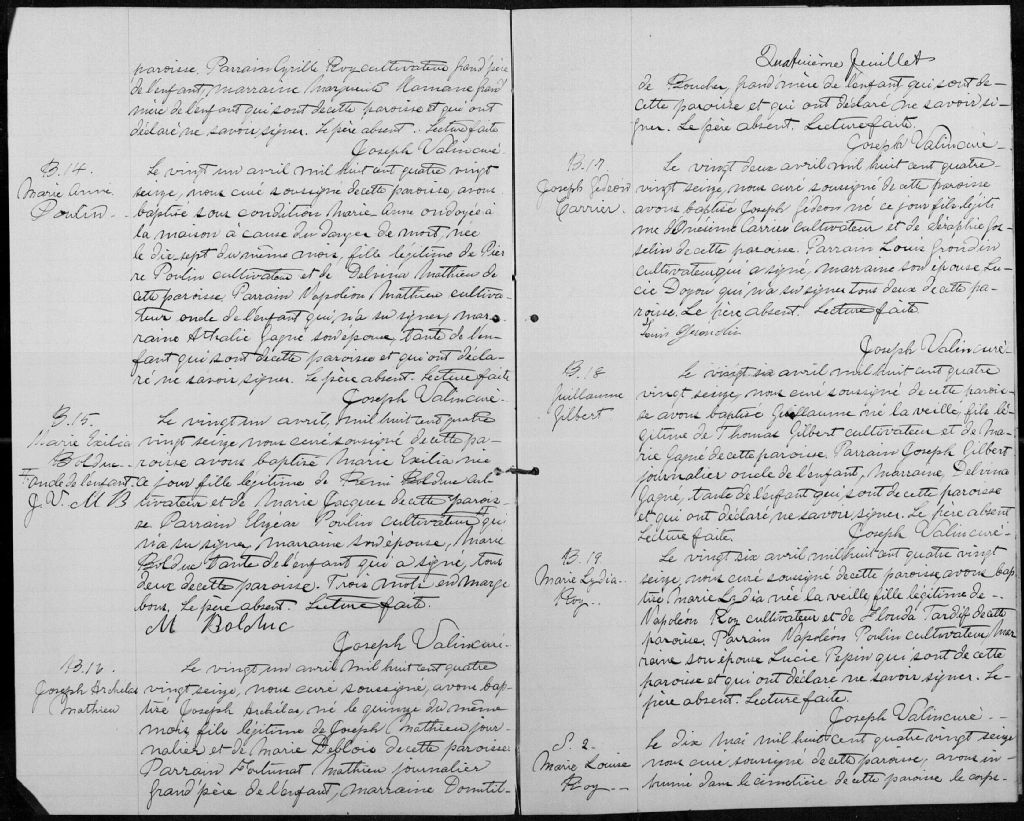 paroisse. Parrain Cyrille Roy cultivateur grand'père
de l'enfant, marraine Marguerite Mamane grand
mère de l'enfant qui sont de cette paroisse et qui ont
déclaré ne savoir signer. Le père absent. Lecture faite
Joseph Valin curé.
B. 14.
Marie Anne
Poulin
Le vingt un avril mil huit cent quatre vingt
seize, nous curé soussigné de cette paroisse, avons
baptisé sous condition Marie Anne ondoyée à
la maison à cause du danger de mort, née
le dix sept du même mois, fille légitime de Pier
re Poulin cultivateur et de Delvina Mathieu de
cette paroisse. Parrain Napoléon Mathieu cultiva-
teur oncle de l'enfant qui n'a su signer, mar-
raine Athalie Gagné son épouse, tante de l'en-
fant qui sont de cette paroisse et qui ont décla-
ré ne savoir signer. Le père absent. Lecture faite
Joseph Valin curé.
B. 15.
Marie Exilia
Bolduc
F oncle de l'enfant
J. V. M B
Le vingt un avril, mil huit cent quatre
vingt seize nous curé soussigné de cette pa-
roisse avons baptisé Marie Exilia née
ce jour fille légitime de Remi Bolduc cul-
tivateur et de Marie Jacques de cette parois-
se Parrain Elzear Poulin cultivateur F qui
n'a su signer, marraine son épouse, Marie
Bolduc tante de l'enfant qui a signé, tous
deux de cette paroisse. Trois mots en marge
bons. Le père absent. Lecture faite.
M Bolduc
Joseph Valin curé.
B. 16.
Joseph Archelas
Mathieu
Le vingt un avril mil huit cent quatre
vingt seize, nous curé soussigné, avons bap-
tisé Joseph Archélas, né le quinze du même
mois, fils légitime de Joseph Mathieu jour-
nalier et de Marie Deblois de cette paroisse.
Parrain Fortunat Mathieu journalier
grand'père de l'enfant, marraine Domitil-
Quatrième feuillet
de Boucher, grand'mère de l'enfant qui sont de
cette paroisse et qui ont déclaré ne savoir si-
gner. Le père absent. Lecture faite
Joseph Valin curé.
B. 17
Joseph Gédéon
Carrier.
Le vingt deux avril mil huit cent quatre-
vingt seize, nous curé soussigné de cette paroisse
avons baptisé Joseph Gédéon né ce jour fils légiti
me d'Onésime Carrier cultivateur et de Séraphie Jos-
selin de cette paroisse. Parrain Louis Grondin
cultivateur qui a signé, marraine son épouse Lu-
cie Doyon qui n'a su signer tous deux de cette pa-
roisse. Le père absent. Lecture faite
Louis Grondin
Joseph Valin curé.
B. 18
Guillaume
Gilbert
Le vingt six avril mil huit cent quatre
vingt seize, nous curé soussigné de cette parois-
se avons baptisé Guillaume né la veille, fils lé-
gitime de Thomas Gilbert cultivateur et de Ma-
rie Gagné de cette paroisse. Parrain Joseph Gilbert
journalier oncle de l'enfant, Marraine, Delvina
Gagné, tante de l'enfant qui sont de cette paroisse
et qui ont déclaré ne savoir signer. Le père absent
Lecture faite. Joseph Valin curé.
B. 19
Marie Lydia
Roy
Le vingt six avril mil huit cent quatre vingt
seize, nous curé soussigné de cette paroisse avons bap
tisé Marie Lydia née la veille fille légitime de
Napoléon Roy cultivateur et de Tardif de cette
paroisse. Parrain Napoléon Poulin cultivateur Mar
raine son épouse Lucie Pepin qui sont de cette
paroisse et qui ont déclaré ne savoir signer. Le
père absent. Lecture faite.
Joseph Valin curé.
S. 2
Marie Louise
Roy
Le dix mai mil huit cent quatre vingt seize
nous curé soussigné de cette paroisse, avons in-
humé dans le cimetière de cette paroisse le corps